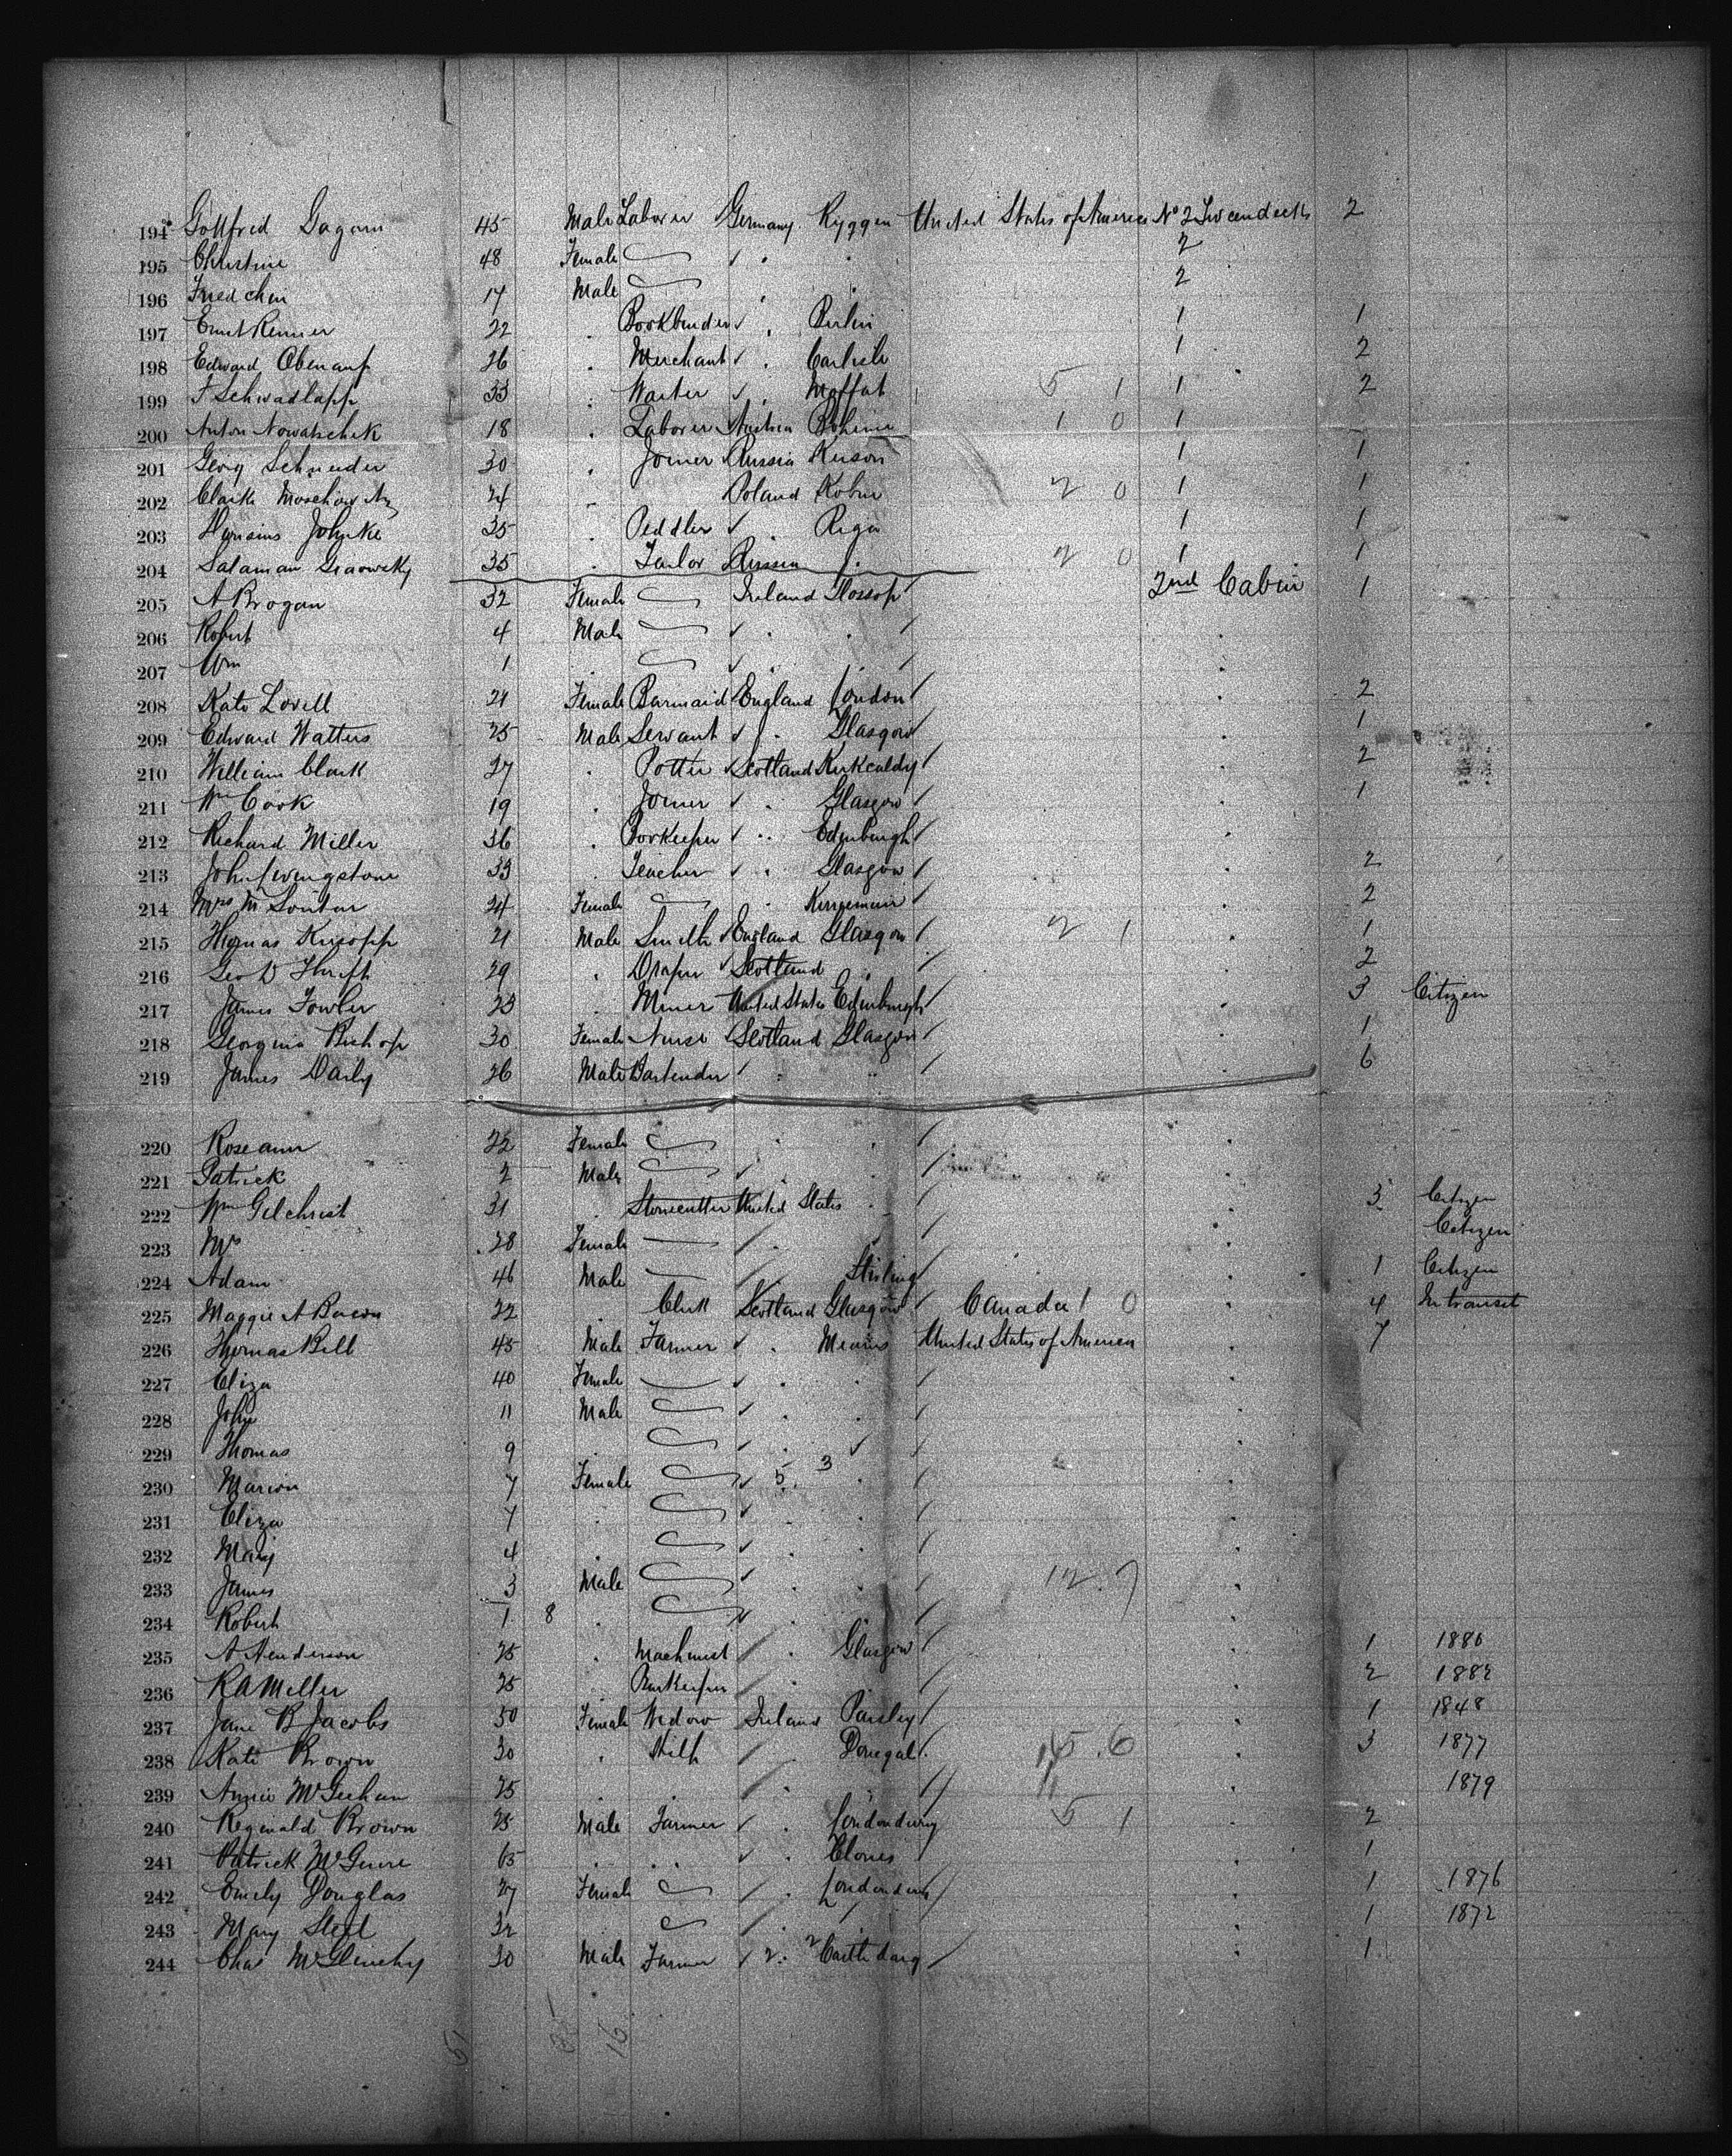 194 Gottfried Gagern 45 Male Laborer Germany Ryggen United States of America No 2 Tweendecks 2
195 Christine 48 Female 2
196 14 Male 2
197 Ernst Renner 22 Bookbinder Berlin 1 1
198 Edward Obenauf 26 Merchant Carlisle 1 2
199 33 Waiter Moffat 5 1 1 2
200 Anton Nowatschek 18 Laborer Austria 1 0 1
201 Georg Schneider 30 Joiner Russia 1 1
202 24 Poland 2 0 1 1
203 35 Peddler Riga 1 1
204 Salaman 35 Tailor Russia 2 0 1 1
205 A Brogan 32 Female Ireland Glossop 2nd Cabin 1
206 Robert 4 Male
207 Wm 1
208 Kate Lovell 21 Female Barmaid England London 2
209 Edward Watters 25 Male Servant Glasgow 1
210 William Clark 27 Potter Scotland Kirkcaldy 2
211 Wm Cook 19 Joiner Glasgow 1
212 Richard Miller 36 Edinburgh
213 John Livingstone 33 Teacher Glasgow 2
214 Mrs M Soutar 24 Female 2
215 Thomas 21 Male Smith England Glasgow 2 1 1
216 Geo D Thrift 29 Draper Scotland 2
217 James Fowler 23 Miner United States Edinburgh 3 Citizen
218 Georgina Bishop 30 Female Nurse Scotland Glasgow 1
219 James Daily 26 Male Bartender 6
220 Roseann 22 Female
221 Patrick 2 Male
222 Wm Gilchrist 31 Stonecutter United States 3 Citizen
223 Mrs 28 Female Citizen
224 Adam 46 Male Stirling 1 Citizen
225 Maggie A Bacon 22 Clerk Scotland Glasgow Canada 1 0 4 In transit
226 Thomas Bell 45 Male Farmer Mearns United States of America 7
227 Eliza 40 Female
228 John 11 Male
229 Thomas 9
230 Marion 7 Female 5 3
231 Eliza 7
232 Mary 4
233 James 3 Male 12.7
234 Robert 1 8
235 A Henderson 25 Machinist Glasgow 1 1886
236 R A Miller 25 Barkeeper 2 1882
237 Jane B Jacobs 50 Female Widow Ireland Paisley 1 1848
238 Kate Brown 30 Donegal 6 3 1877
239 Annie McGeehan 25 1879
240 Reginald Brown 25 Male Farmer Londonderry 5 1 2
241 Patrick McGuire 65 Clones 1
242 Emily Douglas 27 Female Londonderry 1 1876
243 Mary Steel 32 1 1872
244 Chas McGlinchy 30 Male Farmer 2 2 1
16